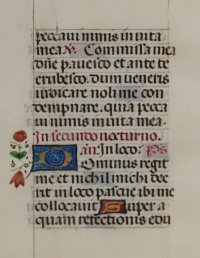 peccavi nimis in vita
mea. V. Commissa mea
dñe pavesco et ante te
erubesco. dum veneris
iudicare noli me con
dempnare. quia pecca
vi nimis in vita mea.
In secundo nocturno.
an. In loco. ps.
Dominus regit
me et nichil michi de
erit in loco pascue ibi me
collocavit Super a
quam refectionis edu